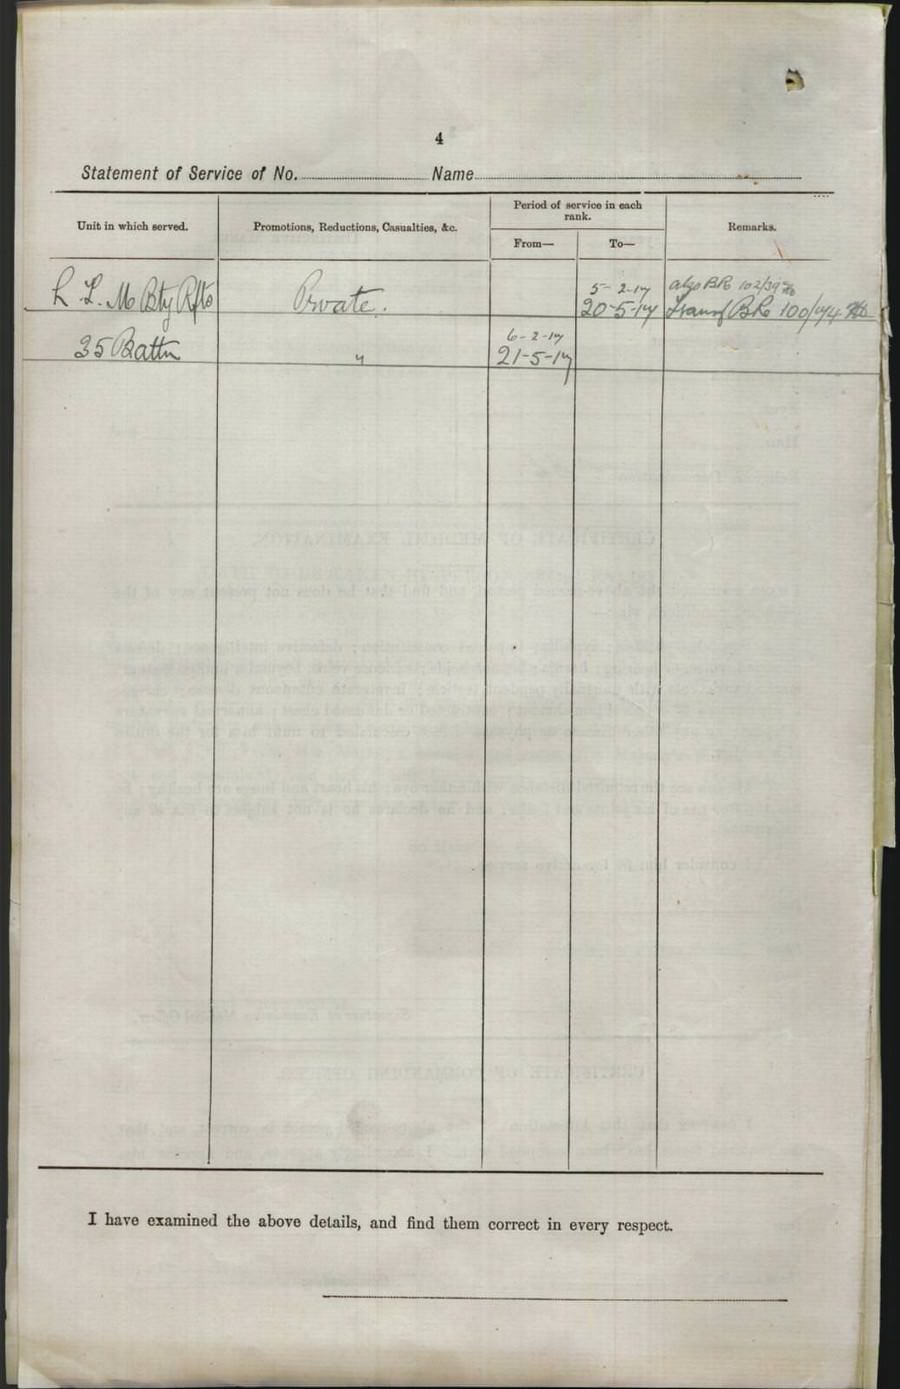 4
Statement of Service of No. Name
Unit in which served. Promotions, Reductions, Casualties, &c. Period of service in each rank. From— To— Remarks.
5-2-17 102/39
L.M Bty Rfts Private. 20-5-17 Transf BRo 100/
6-2-17
35 Battn " 21-5-17
I have examined the above details, and find them correct in every respect.